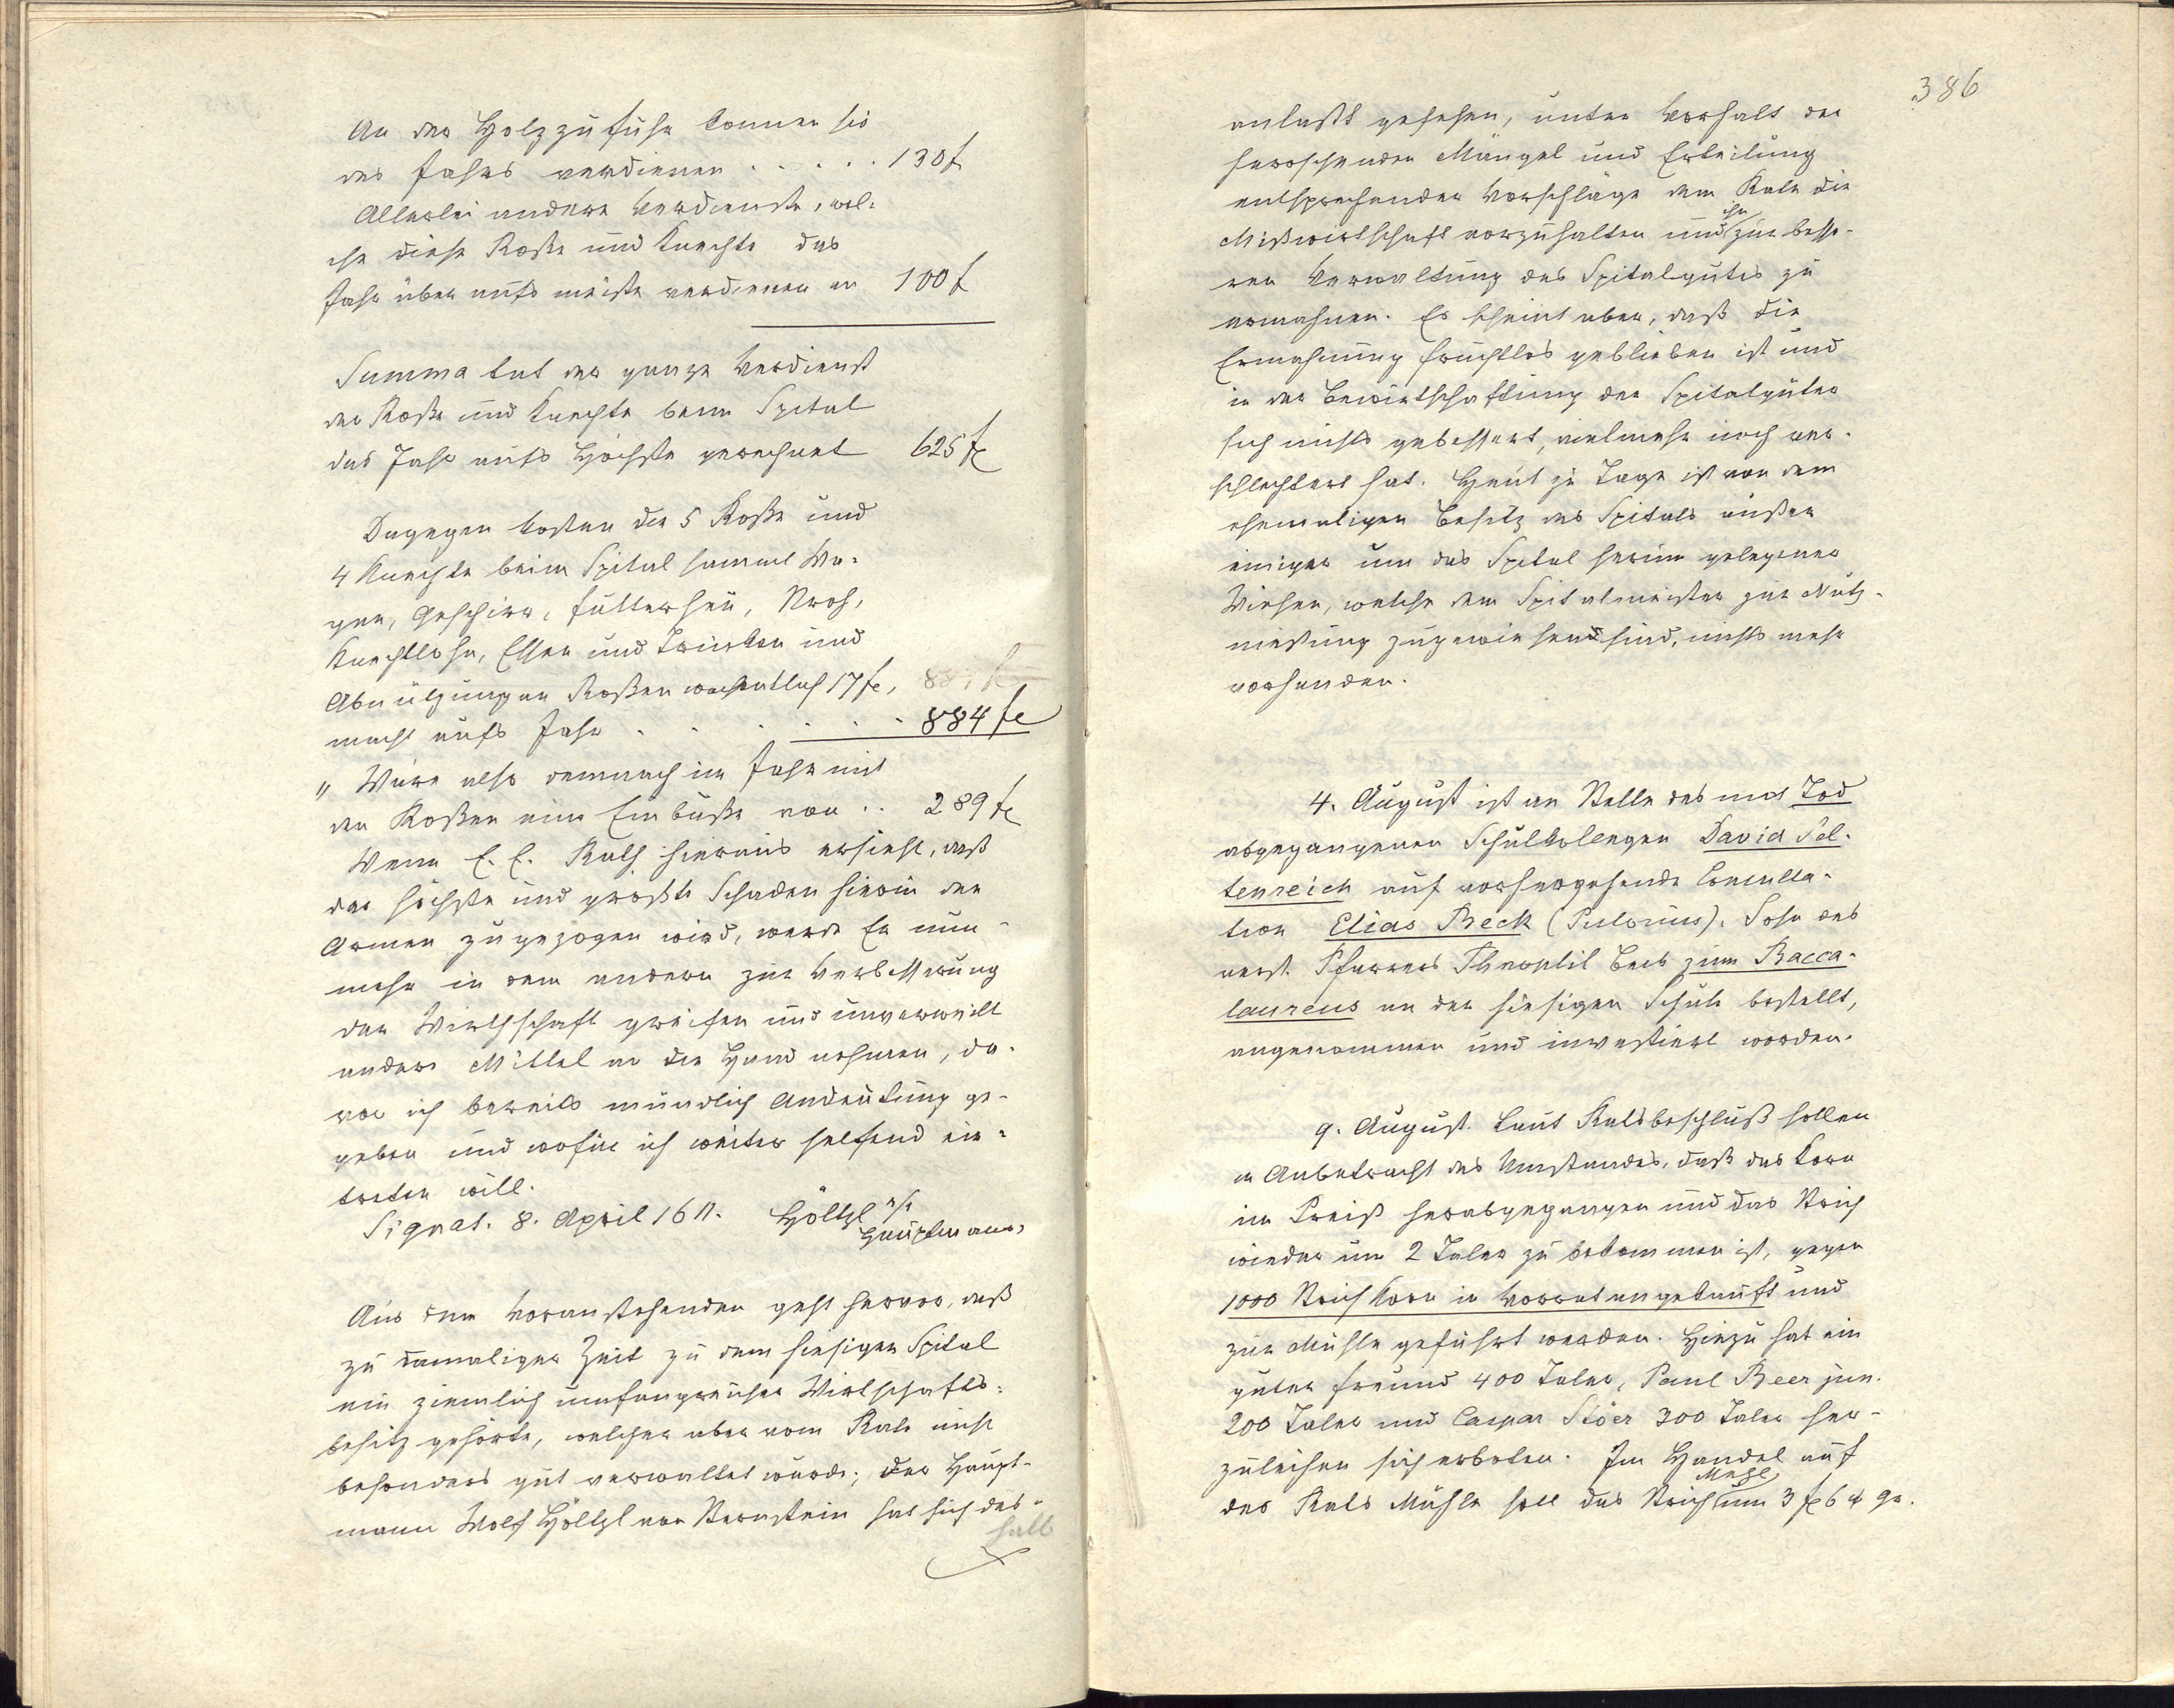 An der Holzzufuhr können sie
des Jahrs verdienen . . . . . 130 f
Allerlei andere Verdienste, wel-
che diese Roße und Knechte das
Jahr über aufs meiste verdienen er 100 f
Summa tut der ganze Verdienst
der Roße und Knechte beim Spital
das Jahr aufs Höchste gerechnet 625 fl
Dagegen kosten die 5 Roße und
4 Knechte beim Spital sammt Wa-
gen, Geschirr, Futterheu, Stroh,
Knechtlohn, Essen und Trinken und
Abnützung an Roßen wochentlich 17 fl,
macht aufs Jahr . . . . . . 884 fl
" Wäre also demnach im Jahr mit
den Roßen eine Einbuße von . . 289 fl
Wenn E. E. Rath hieraus ersieht, daß
der höchste und größte Schaden hierin den
Armen zugezogen wird, werde Er nun-
mehr in dem andern zur Verbesserung
der Wirthschaft greifen und unverweilt
andere Mittel an die Hand nehmen, da-
von ich bereits mündlich Andeutung ge-
geben und wofür ich weiter helfend ein-
treten will.
Signat. 8. April 1611. Höltzl
Hauptmann.
Aus dem Voranstehenden geht hervor, daß
zu damaliger Zeit zu dem hiesigen Spital
ein ziemlich umfangreicher Wirtschafts-
besitz gehörte, welcher aber vom Rate nicht
besonders gut verwaltet wurde; der Haupt-
mann Wolf Höltzl von Sternstein hat sich des-
halb
386
anlaßt gesehen, unter Vorhalt der
herrschenden Mängel und Erteilung
entsprechender Vorschläge dem Rate die
Mißwirtschaft vorzuhalten und ihn zur besse-
ren Verwaltung des Spitalgutes zu
ermahnen. Es scheint aber, daß die
Ermahnung fruchtlos geblieben ist und
in der Bewirtschaftung der Spitalgüter
sich nichts gebessert, vielmehr noch ver-
schlechtert hat. Heut zu Tage ist von dem
ehemaligen Besitz des Spitals außer
einiger um das Spital herum gelegener
Wiesen, welche dem Spitalmeister zur Nutz-
nießung zugewiesen sind, nichts mehr
vorhanden.
4. August ist an Stelle des mit Tod
abgegangenen Schulkollegen David Sel-
tenreich auf vorhergehende Consulta-
tion Elias Beck (Pistorius), Sohn des
verst. Pfarrers Theophil Beck zum Bacca-
laureus an der hiesigen Schule bestellt,
angenommen und investiert worden.
9. August. Laut Ratsbeschluß sollen
in Anbetracht des Umstandes, daß das Korn
im Preiß herabgegangen und das Strich
wieder um 2 Taler zu bekommen ist, gegen
1000 Strich Korn in Vorrat angekauft und
zur Mühle geführt werden. Hiezu hat ein
guter Freund 400 Taler, Paul Beer jun.
200 Taler und Caspar Stöer 300 Taler her-
zuleihen sich erboten. Im Handel auf
der Rats Mühle soll das Strich Mehl um 3 fl 6 gr.